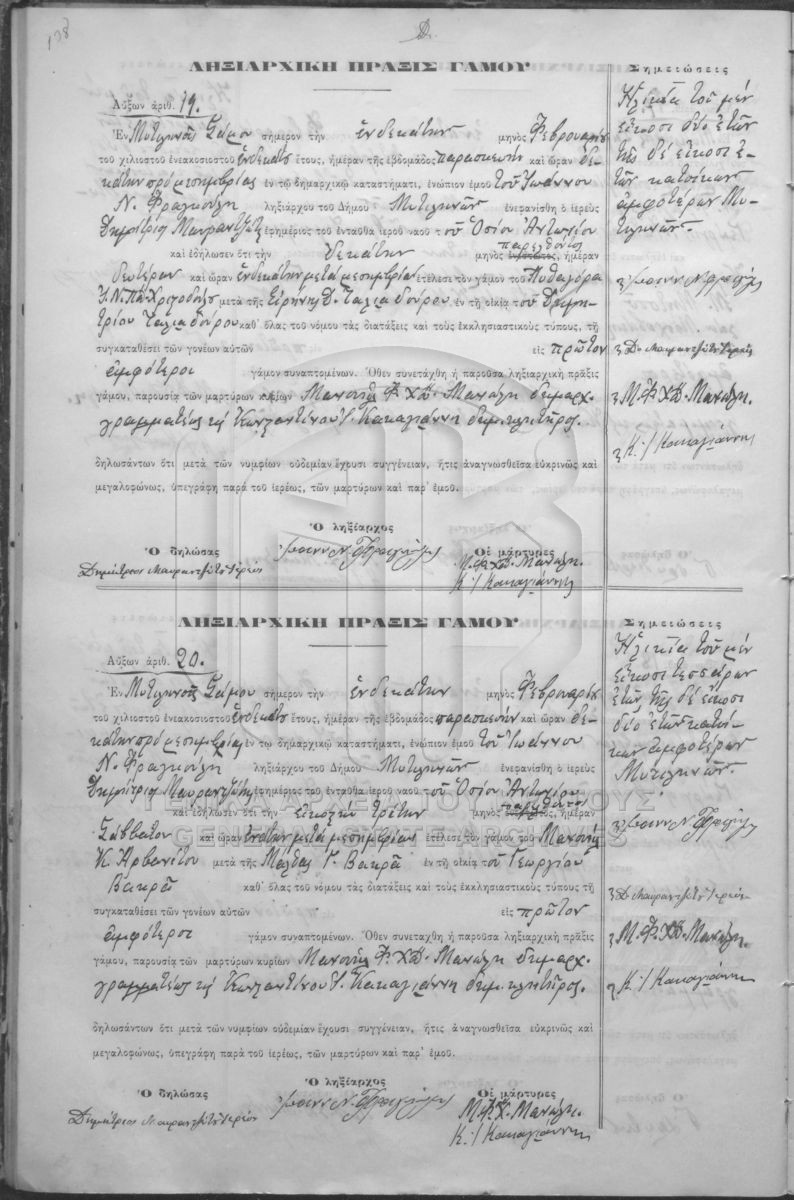 138
Δ.
ΛΗΞΙΑΡΧΙΚΗ ΠΡΑΞΙΣ ΓΑΜΟΥ
Αὔξων ἀριθ. 19.
Ἐν Μυτιληνιοῖς Σάμου σήμερον τὴν ἑνδεκάτην μηνὸς Φεβρουαρίου
τοῦ χιλιοστοῦ ἐνεακοσιοστοῦ ἑνδεκάτου ἔτους, ἡμέραν τῆς ἑβδομάδος παρασκευὴν καὶ ὥραν δε-
κάτην πρὸ μεσημβρίας ἐν τῷ δημαρχικῷ καταστήματι, ἐνώπιον ἐμοῦ τοῦ Ἰωάννου
Ν. Φραγκούλη ληξιάρχου τοῦ Δήμου Μυτιληνιῶν ἐνεφανίσθη ὁ ἱερεὺς
Δημήτριος Μαυραντζώτης ἐφημέριος τοῦ ἐνταῦθα ἱεροῦ ναοῦ τοῦ Ὁσίου Ἀντωνίου
καὶ ἐδήλωσεν ὅτι τὴν δεκάτην μηνὸς ἐνεστῶτος παρελθόντος, ἡμέραν
δευτέραν καὶ ὥραν ἑνδεκάτην μετὰ μεσημβρίαν ἐτέλεσε τὸν γάμον τοῦ Πυθαγόρα
Ν. Πα-Χριστοδούλου μετὰ τῆς Εἰρήνης Δ. Ταλιαδούρου ἐν τῇ οἰκίᾳ τοῦ Δημη-
τρίου Ταλιαδούρου καθ᾽ ὅλας τοῦ νόμου τὰς διατάξεις καὶ τοὺς ἐκκλησιαστικοὺς τύπους, τῇ
συγκαταθέσει τῶν γονέων αὐτῶν εἰς πρῶτον
ἀμφότεροι γάμον συναπτομένων. Ὅθεν συνετάχθη ἡ παροῦσα ληξιαρχικὴ πρᾶξις
γάμου, παρουσίᾳ τῶν μαρτύρων κυρίων Μανουὴλ Φ. Χ΄΄Δ. Μανώλη δημαρχ.
γραμματέως καὶ Κωνσταντίνου Ι. Κακαγιάννη δημ. κλητῆρος.
δηλωσάντων ὅτι μετὰ τῶν νυμφίων οὐδεμίαν ἔχουσι συγγένειαν, ἥτις ἀναγνωσθεῖσα εὐκρινῶς καὶ
μεγαλοφώνως, ὑπεγράφη παρὰ τοῦ ἱερέως, τῶν μαρτύρων καὶ παρ᾽ ἐμοῦ.
Ὁ ληξίαρχος
Ὁ δηλώσας
Ἰωάνν. Ν. Φραγκούλης
Οἱ μάρτυρες
Δημήτριος Μαυραντζώτης Ἱερεύς
Μ. Φ. Χ΄΄Δ. Μανώλη.
Κ. Ι. Κακαγιάννης
Σημειώσεις
Ἡλικία τοῦ μὲν
εἴκοσι δύο ἐτῶν
τῆς δὲ εἴκοσι ἐ-
τῶν κατοίκων
ἀμφοτέρων Μυ-
τιληνιῶν.
Ἰωάνν. Ν. Φραγκούλης
Δ. Μαυραντζώτης Ἱερεύς
Μ. Φ. Χ΄΄Δ. Μανώλη.
Κ. Ι. Κακαγιάννης
ΛΗΞΙΑΡΧΙΚΗ ΠΡΑΞΙΣ ΓΑΜΟΥ
Αὔξων ἀριθ. 20.
Ἐν Μυτιληνιοῖς Σάμου σήμερον τὴν ἑνδεκάτην μηνὸς Φεβρουαρίου
τοῦ χιλιοστοῦ ἐνεακοσιοστοῦ ἑνδεκάτου ἔτους, ἡμέραν τῆς ἑβδομάδος παρασκευὴν καὶ ὥραν δε-
κάτην πρὸ μεσημβρίας ἐν τῷ δημαρχικῷ καταστήματι, ἐνώπιον ἐμοῦ τοῦ Ἰωάννου
Ν. Φραγκούλη ληξιάρχου τοῦ Δήμου Μυτιληνιῶν ἐνεφανίσθη ὁ ἱερεὺς
Δημήτριος Μαυραντζώτης ἐφημέριος τοῦ ἐνταῦθα ἱεροῦ ναοῦ τοῦ Ὁσίου Ἀντωνίου
καὶ ἐδήλωσεν ὅτι τὴν εἰκοστὴν τρίτην μηνὸς παρελθόντος, ἡμέραν
Σάββατον καὶ ὥραν ἐνάτην μετὰ μεσημβρίας ἐτέλεσε τὸν γάμον τοῦ Μανουὴλ
Κ. Αρβανίτου μετὰ τῆς Μάλθας Γ. Βακρᾶ ἐν τῇ οἰκίᾳ τοῦ Γεωργίου
Βακρᾶ καθ᾽ ὅλας τοῦ νόμου τὰς διατάξεις καὶ τοὺς ἐκκλησιαστικοὺς τύπους τῇ
συγκαταθέσει τῶν γονέων αὐτῶν εἰς πρῶτον
ἀμφότεροι γάμον συναπτομένων. Ὅθεν συνεταχθη ἡ παροῦσα ληξιαρχικὴ πρᾶξις
γάμου, παρουσίᾳ τῶν μαρτύρων κυρίων Μανουὴλ Φ. Χ΄΄Δ. Μανώλη δημαρχ.
γραμματέως καὶ Κωνσταντίνου Ι. Κακαγιάννη δημ. κλητῆρος.
δηλωσάντων ὅτι μετὰ τῶν νυμφίων οὐδεμίαν ἔχουσι συγγένειαν, ἥτις ἀναγνωσθεῖσα εὐκρινῶς καὶ
μεγαλοφώνως, ὑπεγράφη παρὰ τοῦ ἱερέως, τῶν μαρτύρων καὶ παρ᾽ ἐμοῦ.
Ὁ ληξίαρχος
Ὁ δηλώσας
Ἰωάνν. Ν. Φραγκούλης
Οἱ μάρτυρες
Δημήτριος Μαυραντζώτης Ἱερεύς
Μ. Φ. Χ. Μανώλη.
Κ. Ι. Κακαγιάννης
Σημειώσεις
Ἡλικία τοῦ μὲν
εἴκοσι τεσσάρων
ἐτῶν τῆς δὲ εἴκοσι
δύο ἐτῶν κατοί-
κων ἀμφοτέρων
Μυτιληνιῶν.
Ἰωάνν. Ν. Φραγκούλης
Δ. Μαυραντζώτης Ἱερεύς
Μ. Φ. Χ΄΄Δ. Μανώλη.
Κ. Ι. Κακαγιάννης